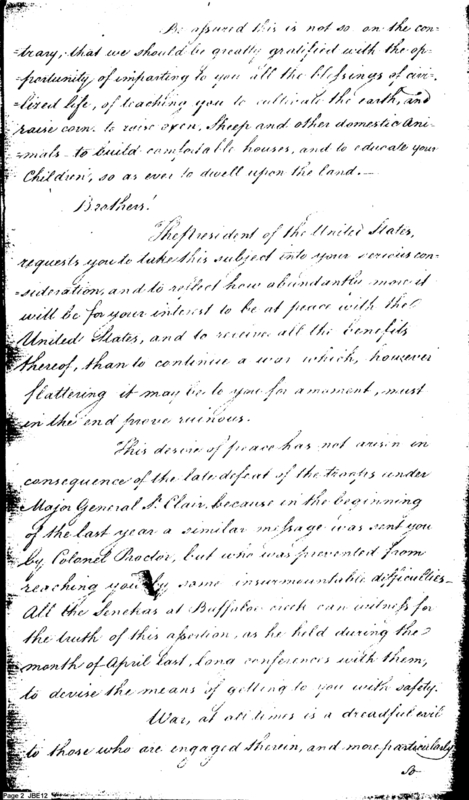 Be assured this is not so, on the con-
=trary, that we should be greatly gratified with the op-
=portunity of imparting to you all the blessings of civi-
=lized life, of teaching you to cultivate the earth, and
raise corn. to raise oxen, Sheep and other domestic Ani-
=mals- to build comfortable houses, and to educate your
Children, so as ever to dwell upon the land.—
Brothers!
The President of the United States,
requests you to take this subject into your serious con-
=sideration, and to reflect how abundantly more it
will be for your interest to be at peace with the
United States, and to receive all the benefits
thereof, than to continue a war which, however
flattering it may be to you for a moment, must
in the end prove ruinous.
This desire of peace has not arisen in
consequence of the late defeat of the troops under
Major General St. Clair, because in the beginning
of the last year a similar message was sent you
by Colonel Proctor, but who was prevented from
reaching you by some insurmountable difficulties-
All the Senekas at Buffaloe creek can witness for
the truth of this assertion, as he held during the
month of April last, long conferences with them,
to devise the means of getting to you with safety.
War, at all times is a dreadful evil
to those who are engaged therein, and more particularly
so
Page 2 JBE12